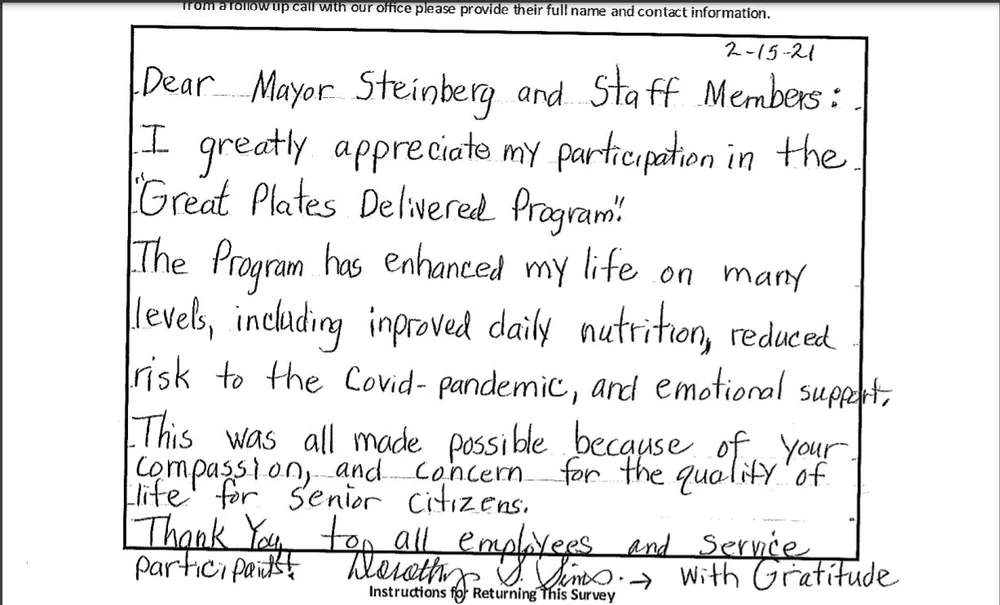 from a follow up call with our office please provide their full name and contact information.
2-15-21
Dear Mayor Steinberg and Staff Members:
I greatly appreciate my participation in the
"Great Plates Delivered Program"!
The Program has enhanced my life on many
levels, including inproved daily nutrition, reduced
risk to the Covid-pandemic, and emotional support.
This was all made possible because of your
compassion, and concern for the quality of
life for senior citizens.
Thank You, too, all employees and service
participants! Dorothy S. → With Gratitude
Instructions for Returning This Survey